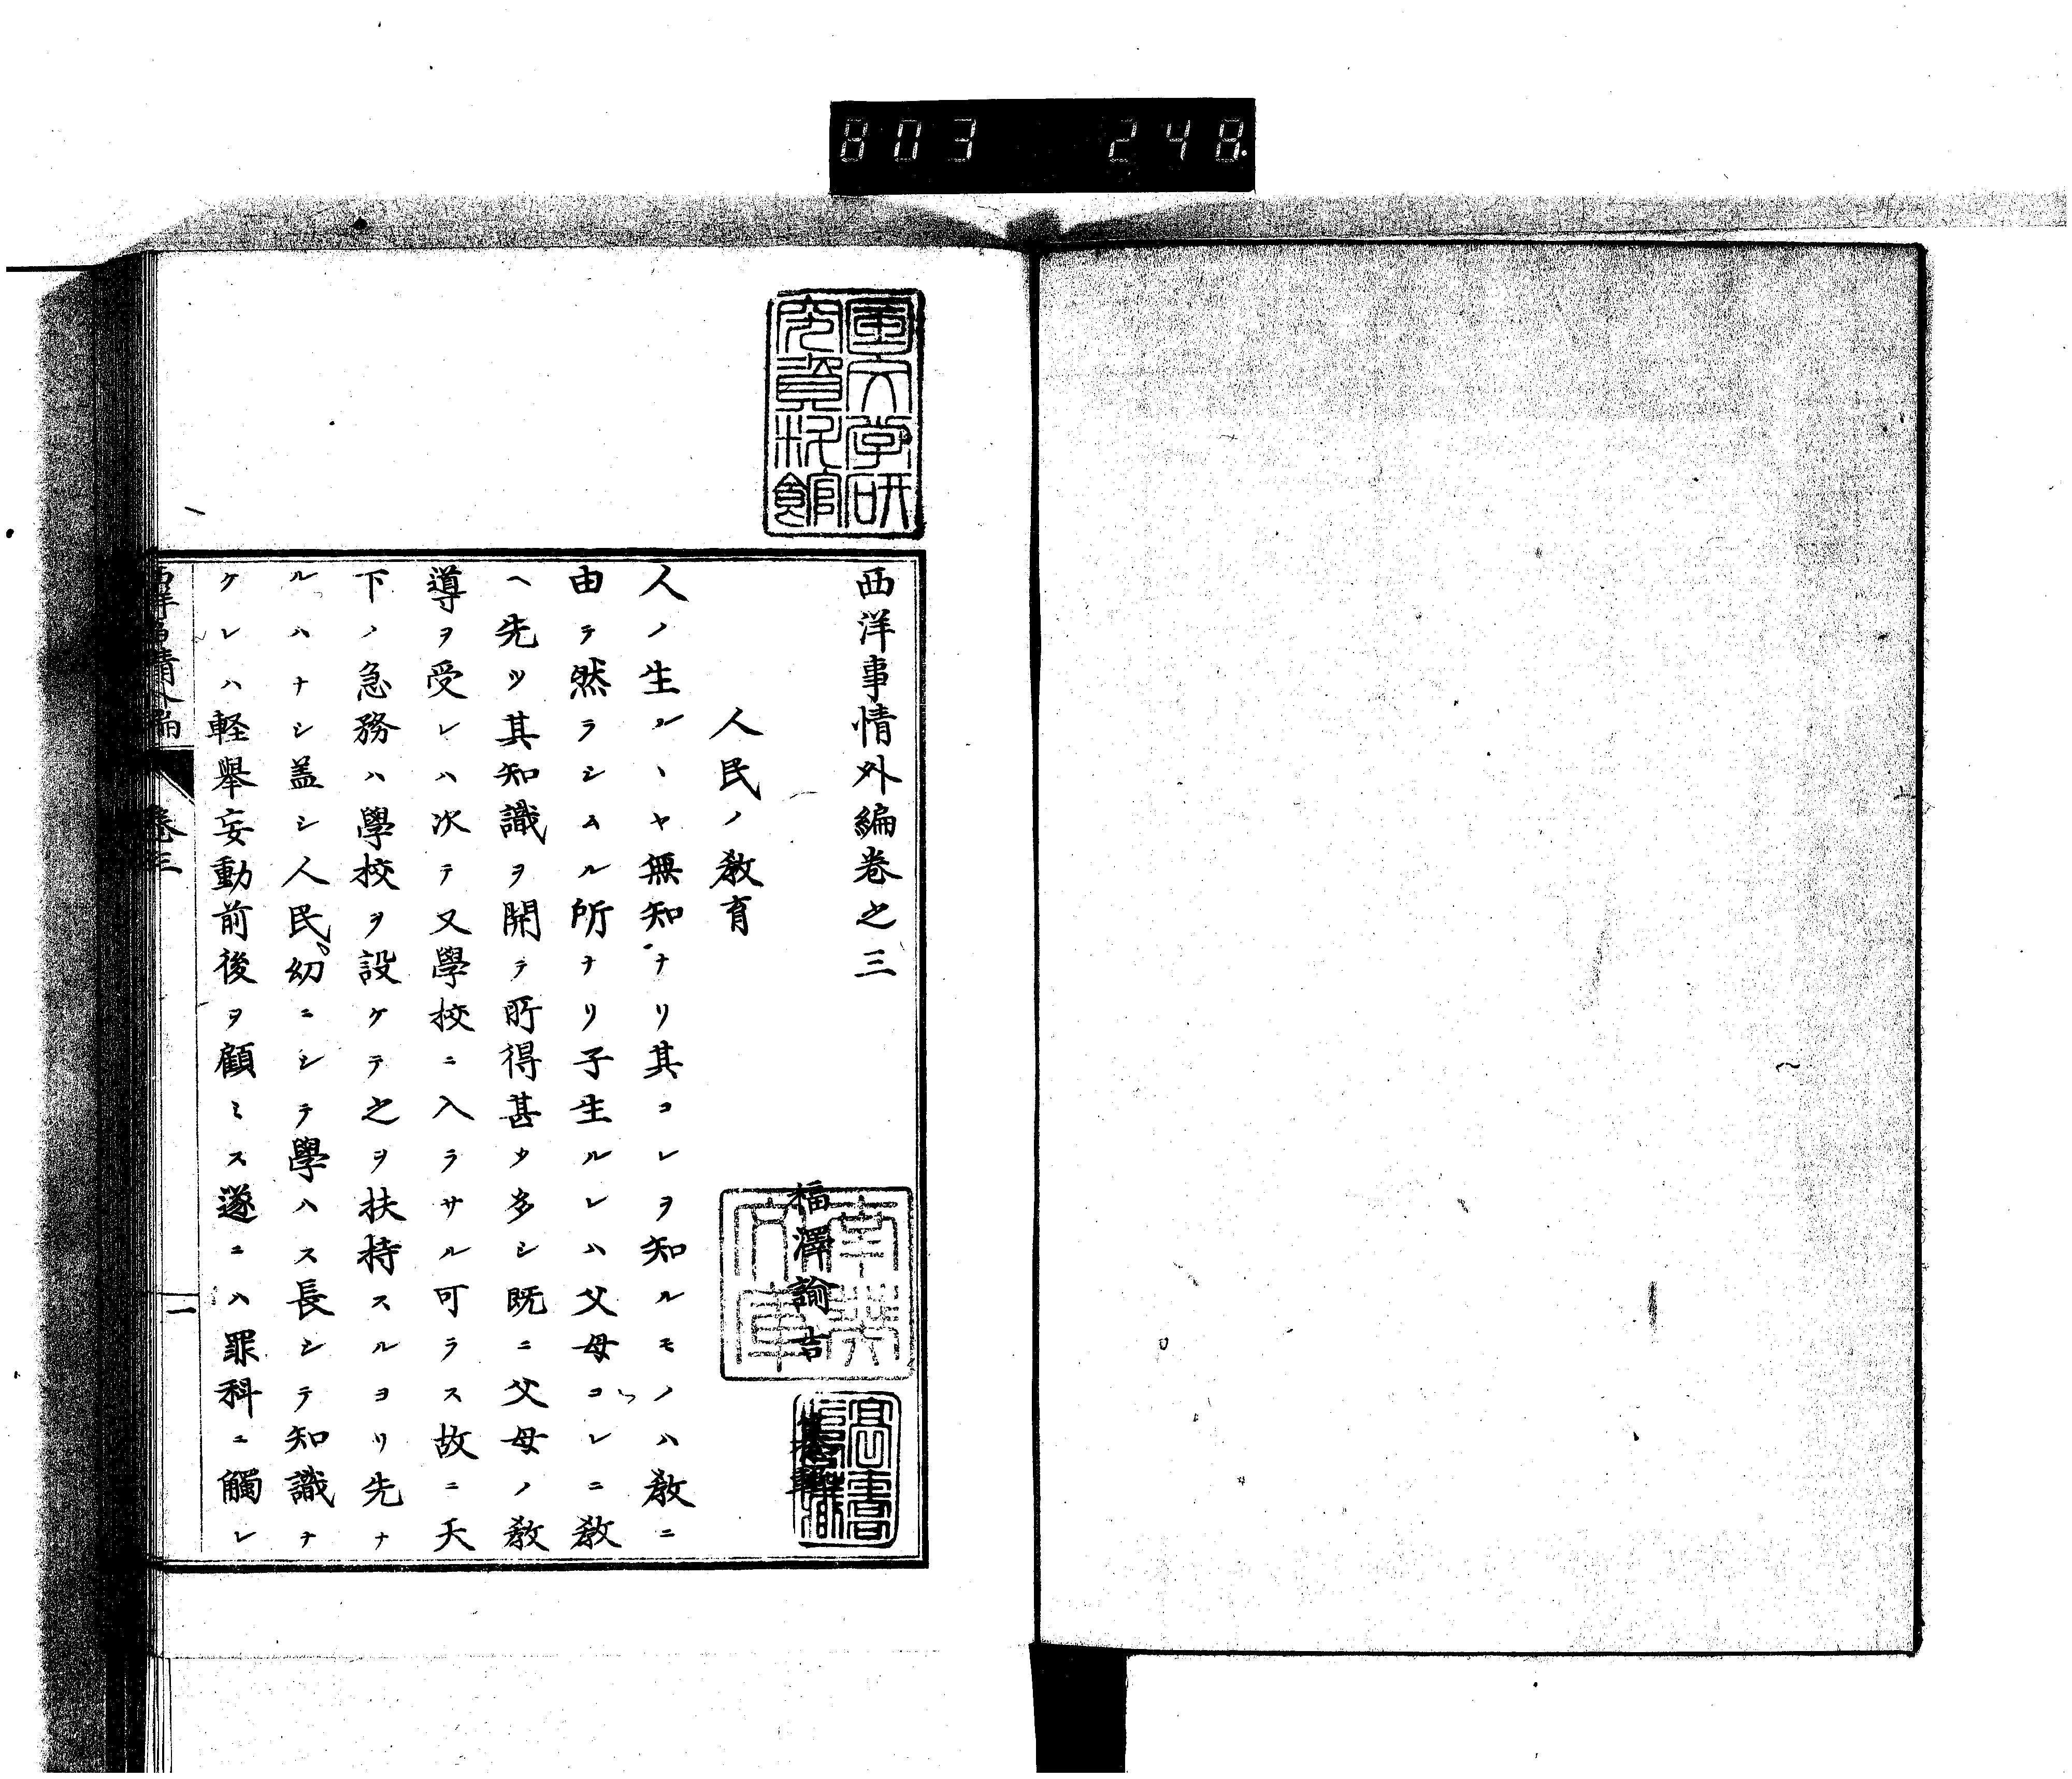 803 248
国文学研
究資料館
西洋事情外編卷之三
福澤諭吉
人民ノ教育
人ノ生ルヽヤ無知ナリ其コレヲ知ルモノハ教ニ
由テ然ラシムル所ナリ子生ルレハ父母コレニ教
ヘ先ツ其知識ヲ開テ所得甚タ多シ既ニ父母ノ教
導ヲ受レハ次テ又學校ニ入ラサル可ラス故ニ天
下ノ急務ハ學校ヲ設ケテ之ヲ扶持スルヨリ先ナ
ルハナシ盖シ人民幼ニシテ學ハス長シテ知識ナ
ケレハ軽舉妄動前後ヲ顧ミス遂ニハ罪科ニ觸レ
西洋事情外編 卷三 一